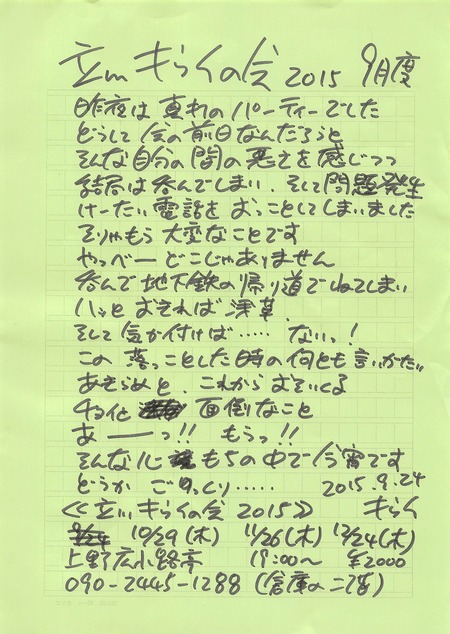 立川 きらくの会 2015 9月度
昨夜は 真打のパーティーでした
どうして 会の前日なんだろうと
そんな自分の間の悪さを感じつつ
結局は呑んでしまい、そして問題発生
けーたい電話を おっことしてしまいました
そりゃもう 大変なことです
やっべー どこじゃありません
呑んで地下鉄の帰り道でねてしまい
ハッと おきれば 浅草
そして気が付けば…… ないっ!
この 落っことした時の何とも言いがたい
あきらめと、これからおそいくる
チョイと 面倒なこと
あ——っ!! もうっ!!
そんな心もちの中で今宵です
どうか ごゆっくり…… 2015.9.24
≪立川 きらくの会 2015≫ きらく
9/24 10/29(木) 11/26(木) 12/24(木)
上野広小路亭 19:00〜 ¥2000
090-2445-1288 (倉庫の二階)